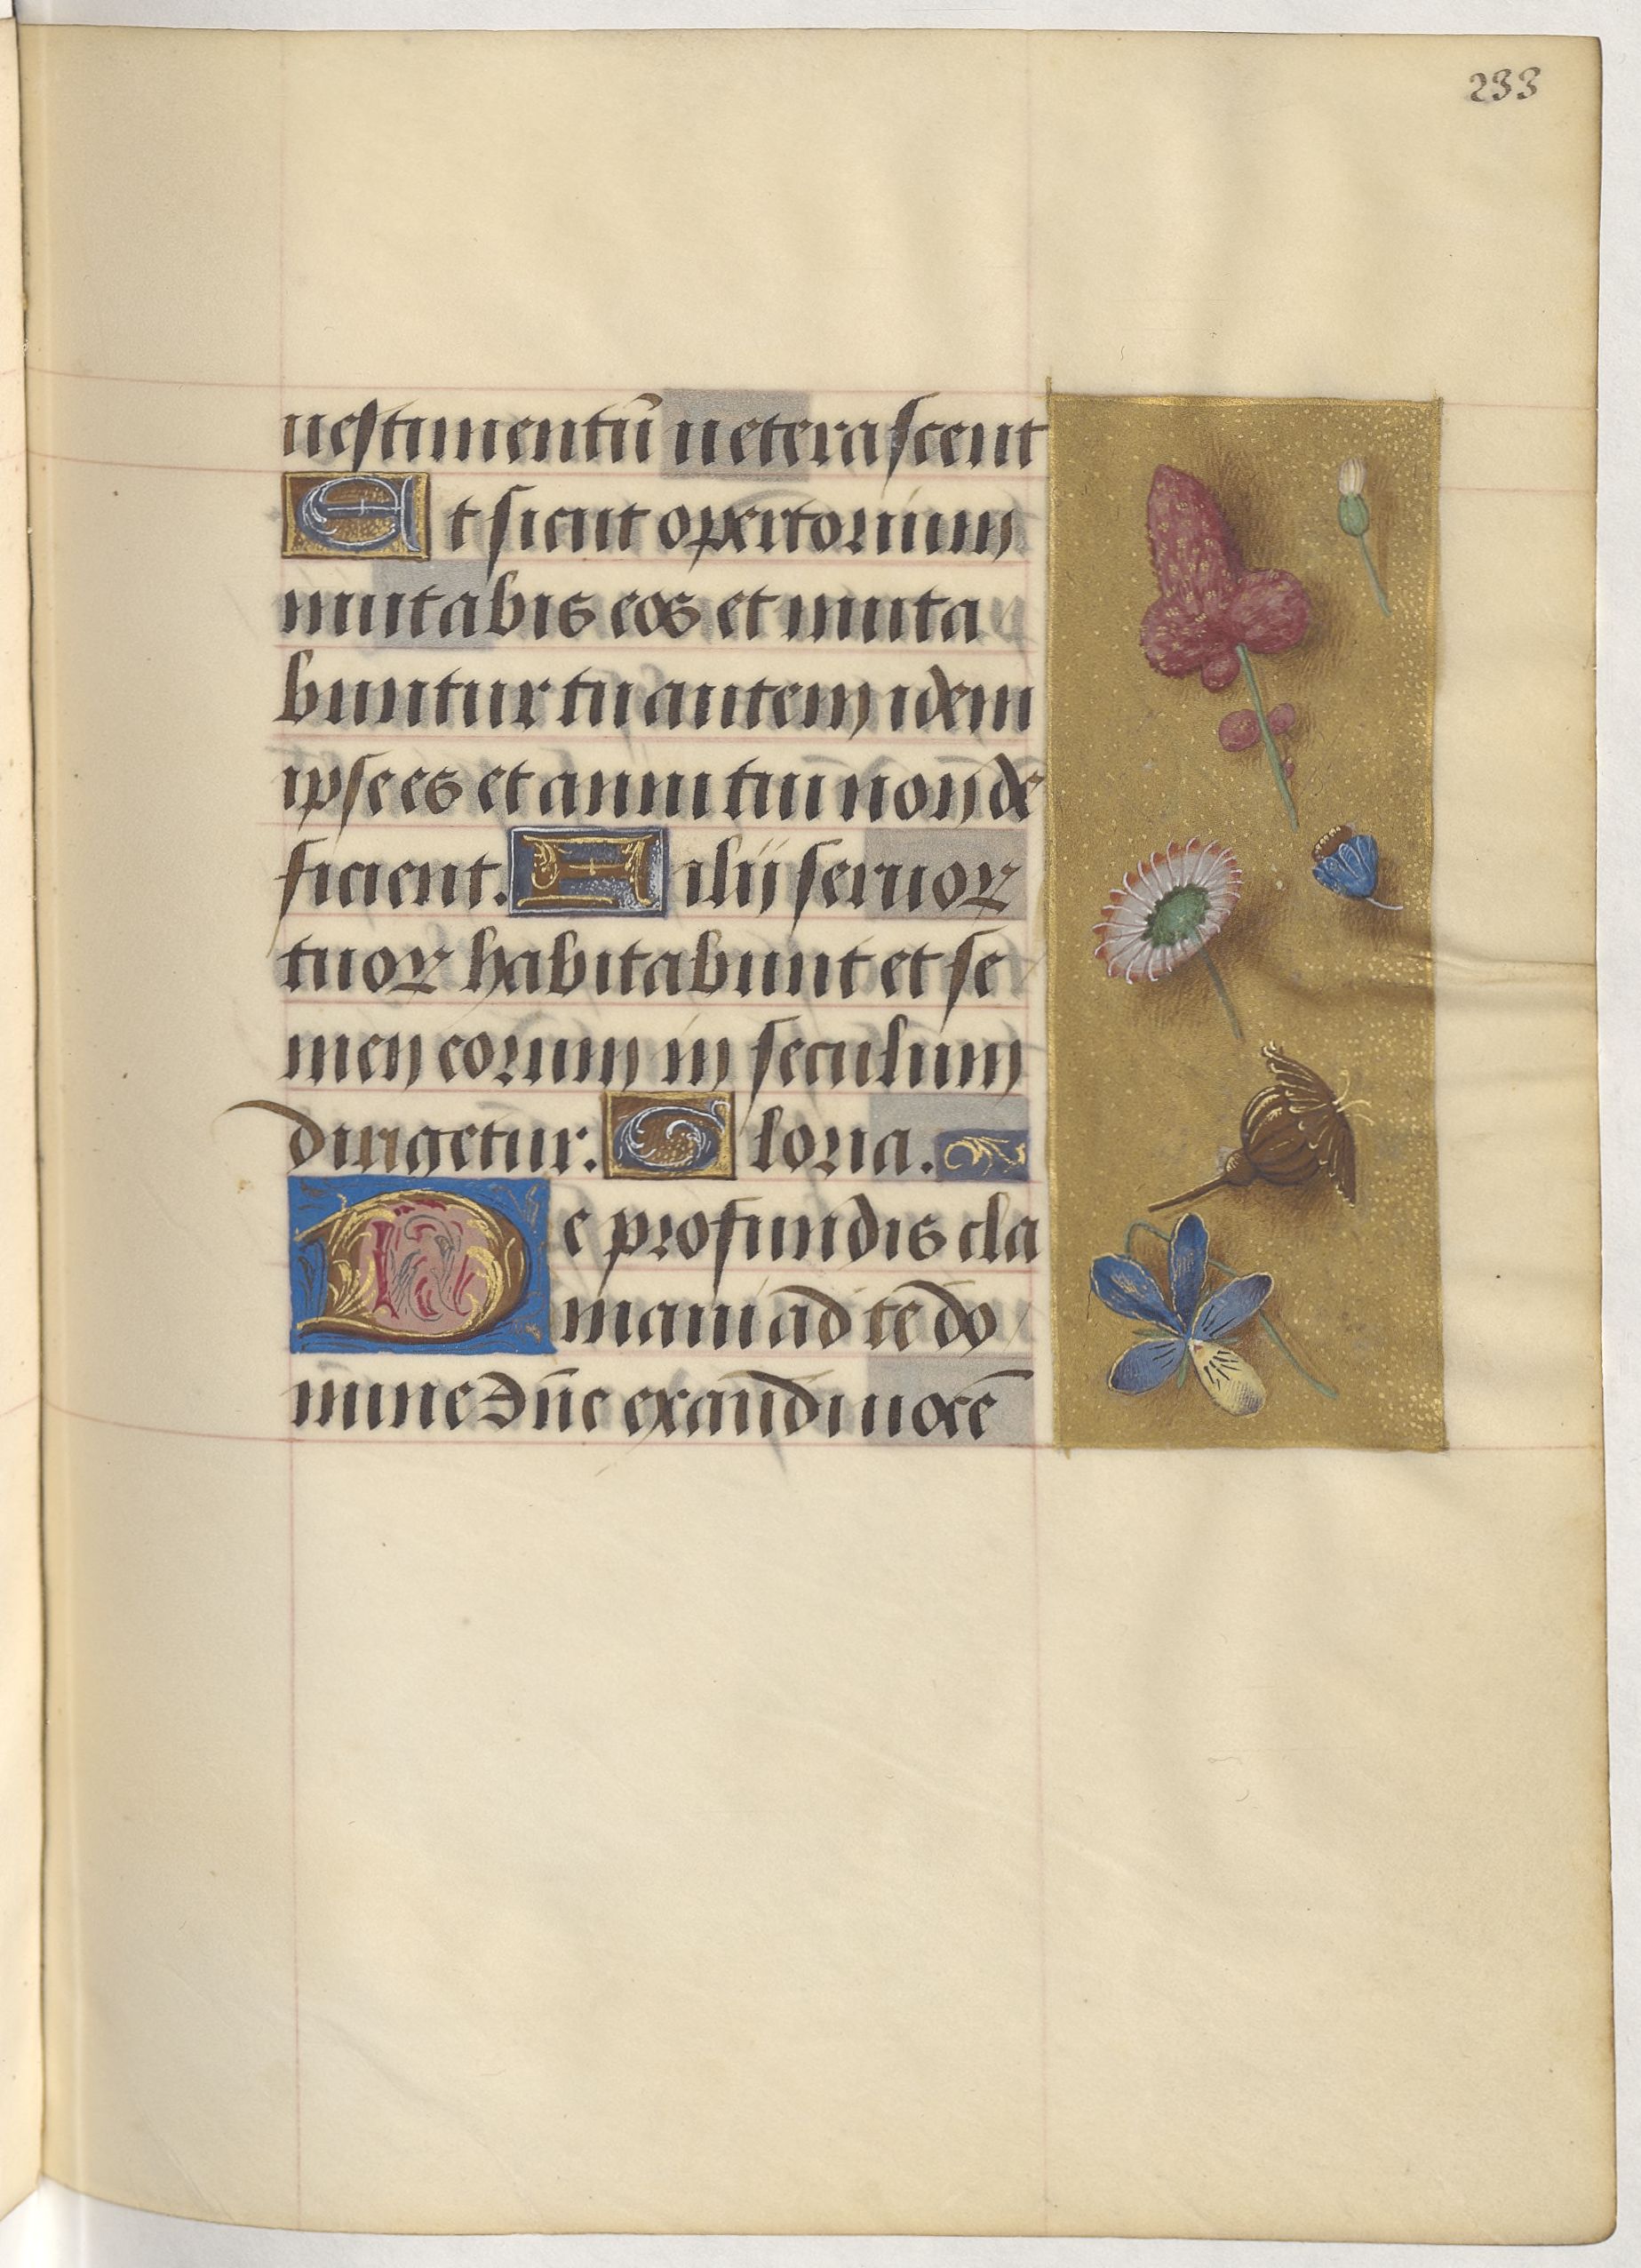 233
uestimentū ueterascent
Et sicut opertorium
mutabis eos et muta
buntur tu autem idem
ipse es et anni tui non de
ficient. Filij seruoꝝ
tuoꝝ habitabunt et se
men eorum in seculum
dirigetur. Gloria.
De profundis cla
maui ad te do
mine Dn̄e exaudi uocē